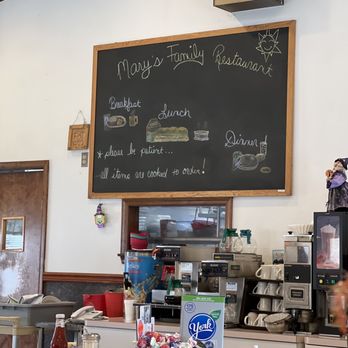 Mary's Family Restaurant
Breakfast
Lunch
Dinner
* please be patient...
all items are cooked to order!
York